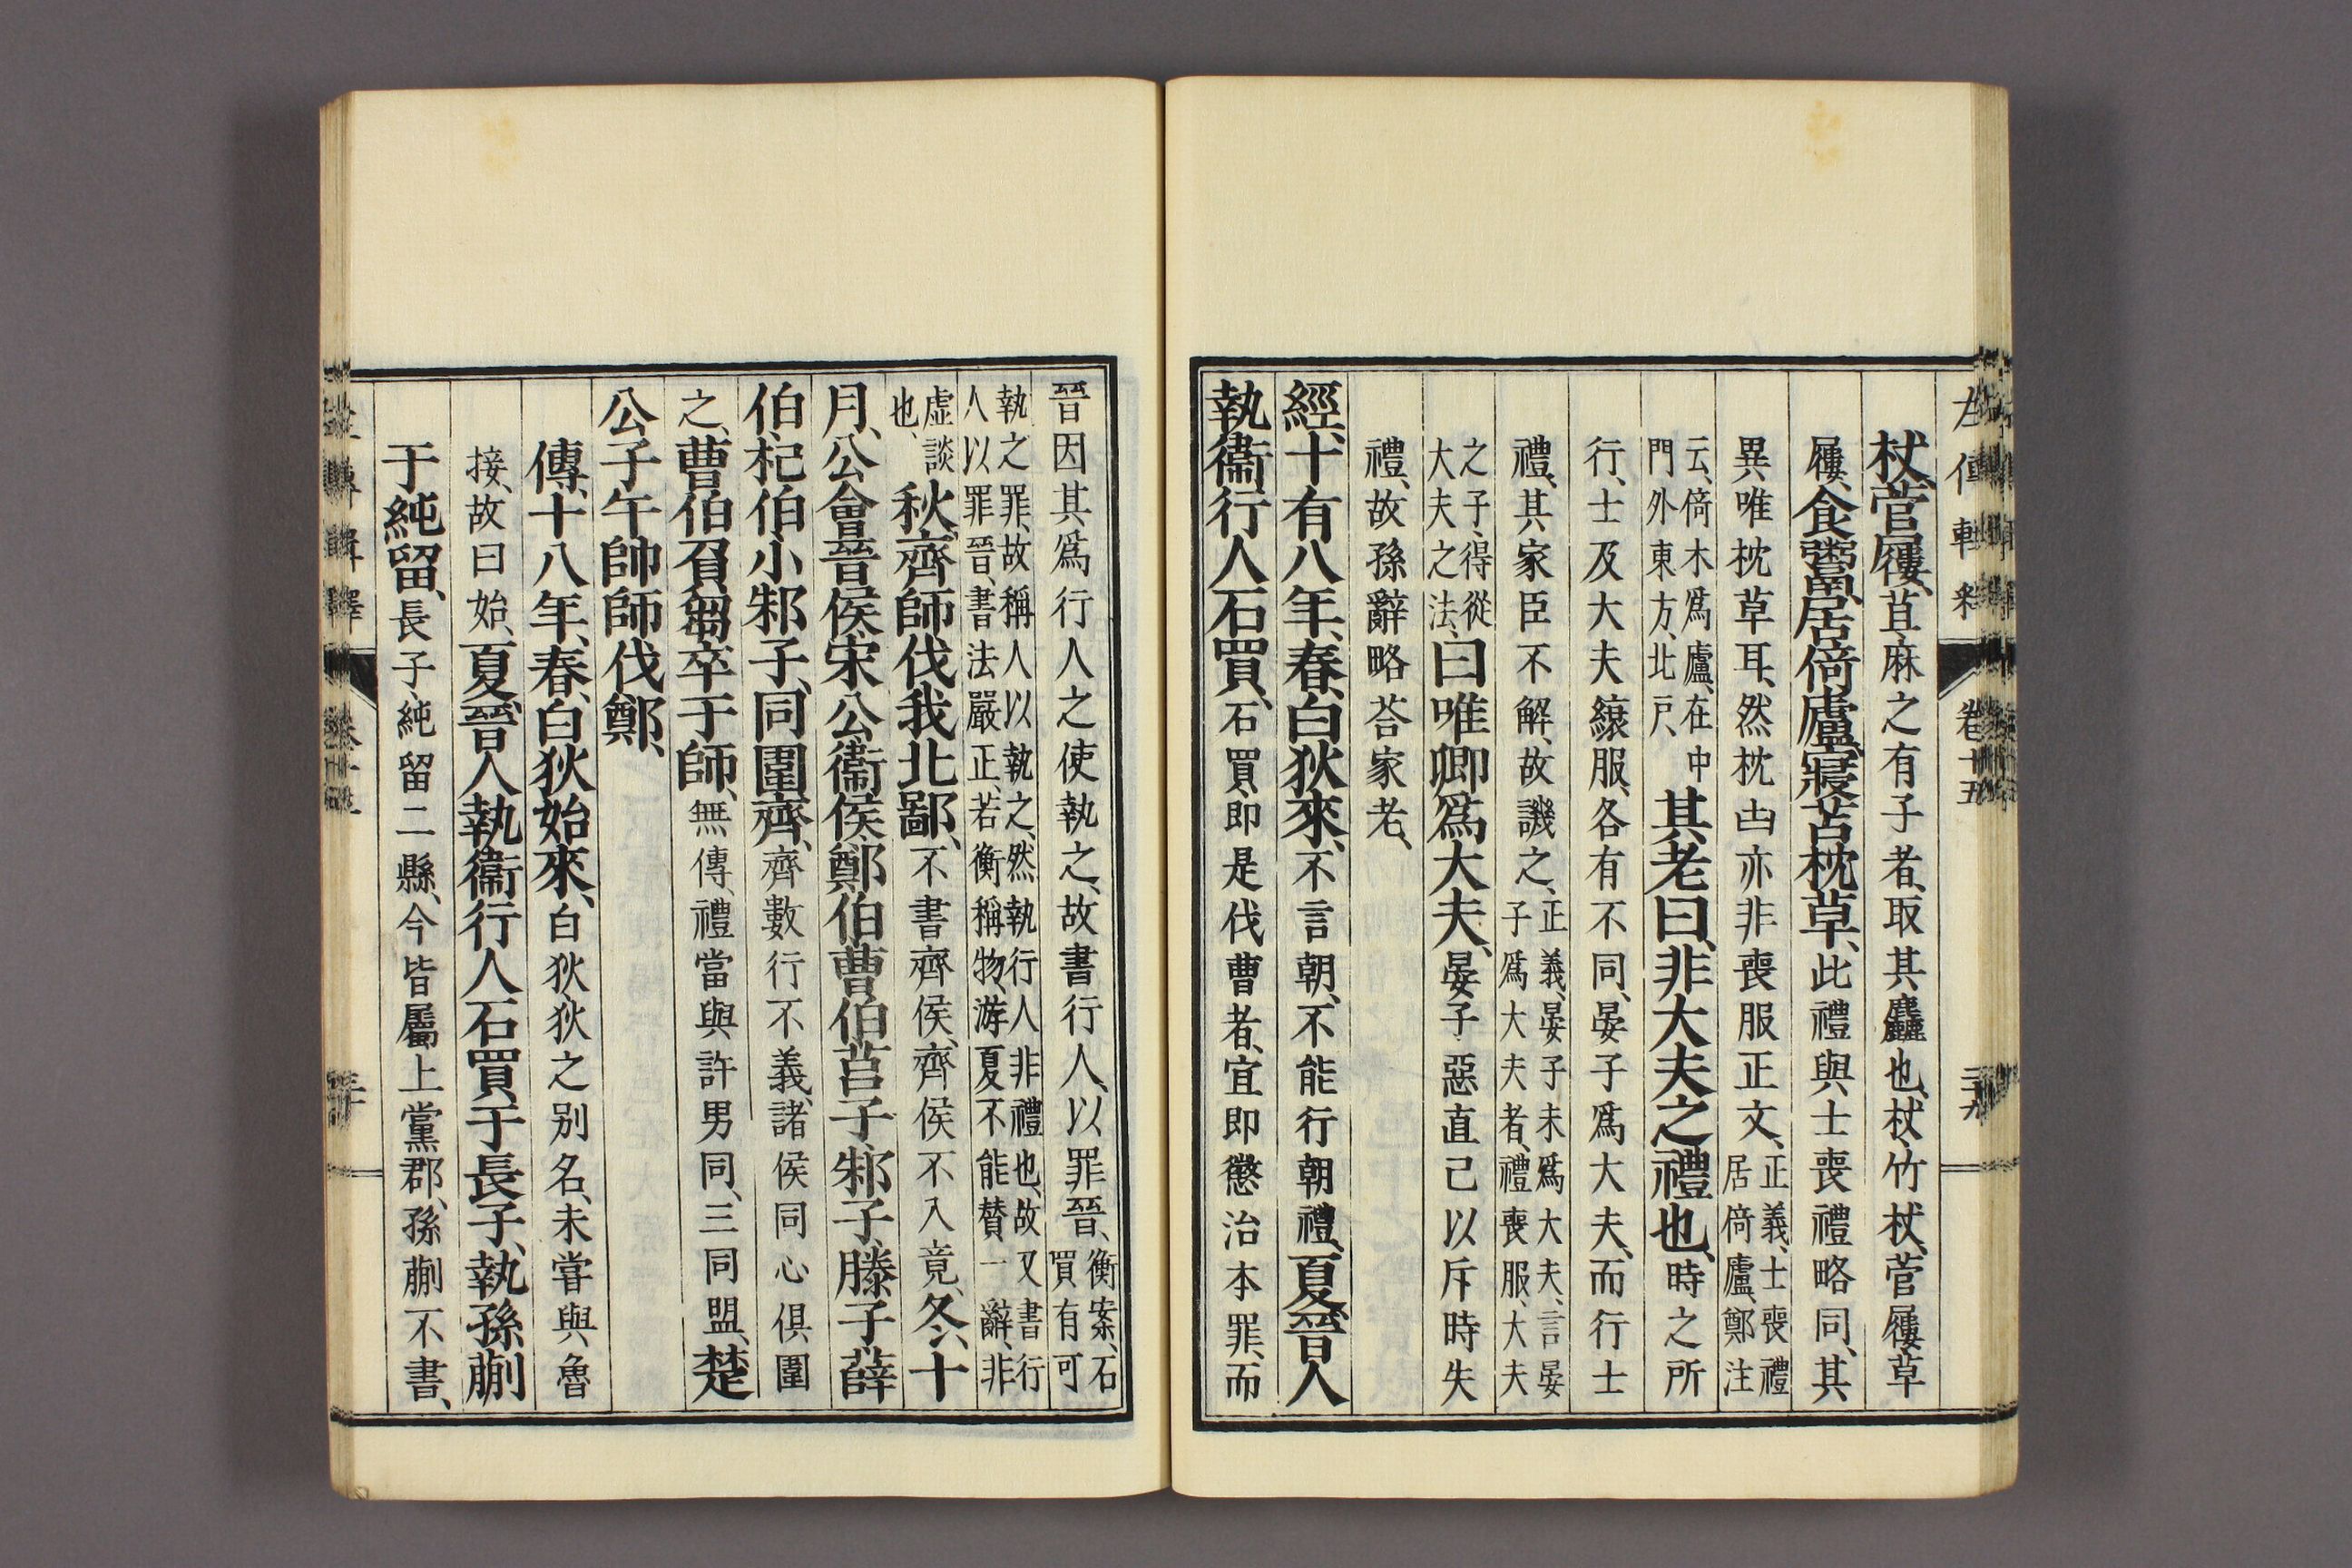 杖、菅屨、苴麻之有子者、取其麤也、杖、竹杖、菅屨、草
屨、食鬻、居倚廬、寢苫枕草、此禮與士喪禮略同、其
異唯枕草耳、然枕凷亦非喪服正文、正義、士喪禮
居倚廬、鄭注
云、倚木爲廬、在中
門外東方、北戸、其老曰、非大夫之禮也、時之所
行、士及大夫縗服、各有不同、晏子爲大夫、而行士
禮、其家臣不解、故譏之、正義、晏子未爲大夫、言晏
子爲大夫者、禮喪服、大夫
之子、得從
大夫之法、曰唯卿爲大夫、晏子惡直己以斥時失
禮、故孫辭略荅家老、
經、十有八年、春、白狄來、不言朝、不能行朝禮、夏、晉人
執衞行人石買、石買、即是伐曹者、宜即懲治本罪、而
左傳輯釋 卷十五 二十九
晉因其爲行人之使執之、故書行人、以罪晉、衡案、石
買有可
執之罪、故稱人以執之、然執行人非禮也、故又書行
人以罪晉、書法嚴正、若衡稱物、游夏不能賛一辭、非
虚談
也、秋、齊師伐我北鄙、不書齊侯、齊侯不入竟、冬、十
月、公會晉侯宋公衞侯鄭伯曹伯莒子邾子滕子薛
伯、杞伯小邾子、同圍齊、齊數行不義、諸侯同心俱圍
之、曹伯負芻卒于師、無傳、禮當與許男同、三同盟、楚
公子午帥師伐鄭、
傳、十八年、春、白狄始來、白狄、狄之別名、未嘗與魯
接、故曰始、夏、晉人執衞行人石買于長子、執孫蒯
于純留、長子、純留二縣、今皆屬上黨郡、孫蒯不書、